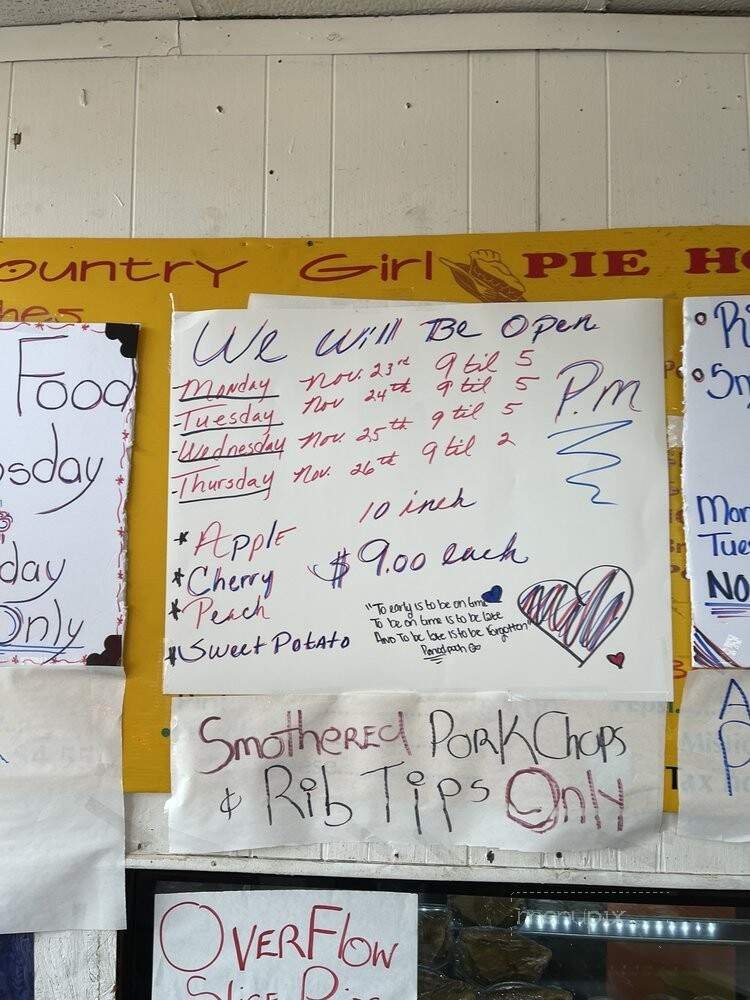 ountry Girl PIE H
hes
Food
sday
day
Only
We Will Be Open
Monday Nov. 23rd 9 til 5
Tuesday Nov 24th 9 til 5
Wednesday Nov. 25th 9 til 5
Thursday Nov. 26th 9 til 2
P.m
10 inch
$9.00 each
* Apple
* Cherry
* Peach
* Sweet Potato
"To early is to be on time
To be on time is to be late
And To be late is to be forgotten"
Smothered Pork Chops
& Rib Tips Only
OverFlow
Slice Pies
Ri
Sm
Mon
Tues
NO
A
P
menupix